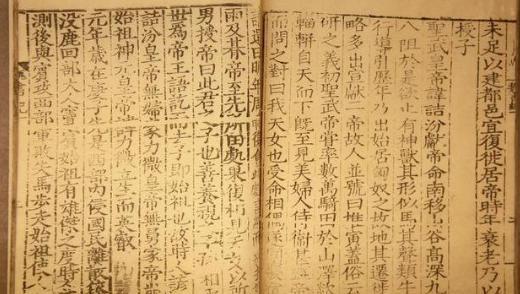 未足以建都邑宜復徙居帝時年衰老乃以
授子
聖武皇帝諱詰汾獻帝命南移山谷高深九
八阻於是欲止有神獸其形似馬其聲類牛
行導引歷年乃出始居匈奴之故地其遷徙
略多出宣獻帝故人並號曰推寅蓋俗云
之義初聖武帝嘗率數萬騎田於山澤欻
輜軿自天而下既至見美婦人侍衛甚
而問之對曰我天女也受命相偶
請還曰明年周時復會
雨及期帝至先所田處果復相見以所
男授帝曰此君之子也善養視之子
世為帝王語訖而去子即始祖也故時人
詰汾皇帝無婦家力微皇帝無舅家帝崩
始祖神元皇帝諱力微立生而英叡
元年歲在庚子先是西部內侵國民離散依
沒鹿回部大人竇賓始祖有雄傑之度時人
測後與賓攻西部軍敗失馬步走始祖使人